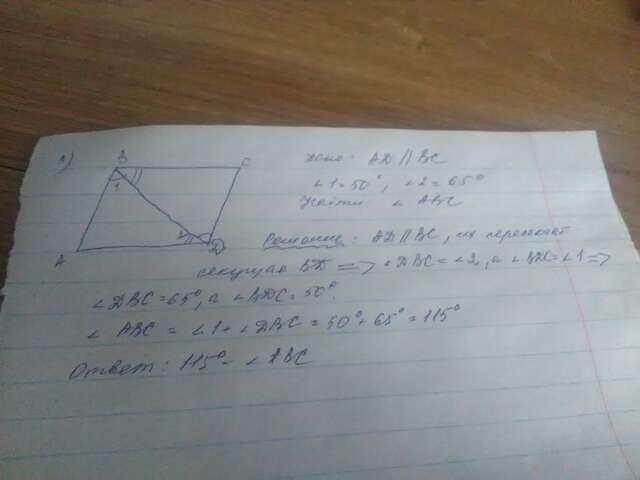 а)
B
C
1
2
A
D
Дано: AD || BC
∠1=50°, ∠2=65°
Найти: ∠ ABC
Решение: AD || BC, их пересекает
секущая BD => ∠DBC=∠2, а ∠BDC=∠1 =>
∠DBC=65°, а ∠BDC=50°.
∠ ABC = ∠1+∠DBC = 50°+65°=115°
Ответ: 115° - ∠ABC